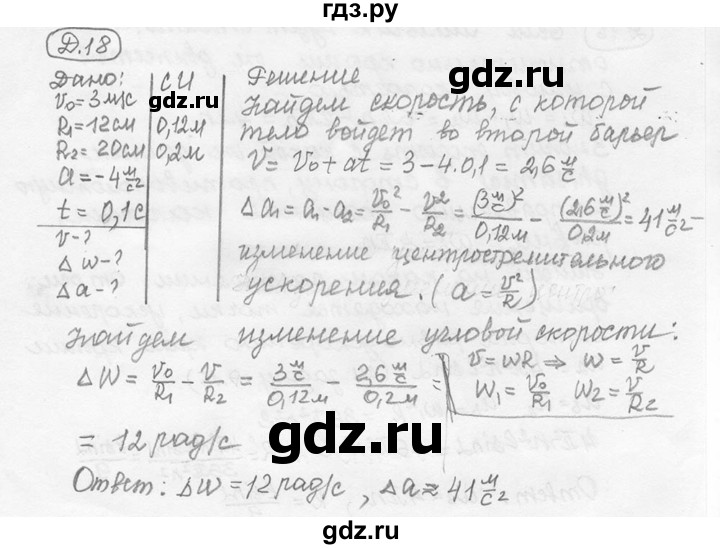 гдз.ру
Д.18
Дано:
V₀=3м/с
R₁=12см
R₂=20см
a=-4м/с²
t=0,1с
v-?
Δω-?
Δa-?
СИ
0,12м
0,2м
Решение
Найдем скорость, с которой
тело войдет во второй барьер
V=V₀+at=3-4·0,1=2,6 м/с
Δa₁=a₁-a₂=V₀²/R₁-V²/R₂=(3м/с)²/0,12м-(2,6м/с)²/0,2м=41м/с²-
изменение центростремительного
ускорения. (a-v²/R)
Найдем изменение угловой скорости:
ΔW=V₀/R₁-V/R₂=3м/с/0,12м-2,6м/с/0,2м=
v=WR⇒W=v/R
W₁=V₀/R₁ W₂=V/R₂
=12рад/с
Ответ: ΔW=12рад/с, Δa≈41м/с²
gdz.ru
gdz.ru
gdz.ru
gdz.ru
gdz.ru
gdz.ru